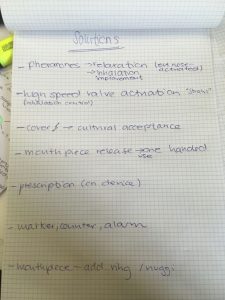 Solutions
- pheromones → relaxation (even nose
→ inhalation activated)
improvement
- high speed valve actuation "strains"
(inhalation control)
- covers → cultural acceptance
- mouth piece release → one handed
use
- prescription (on device)
- marker, counter, alarm
- mouthpiece - add. ring /